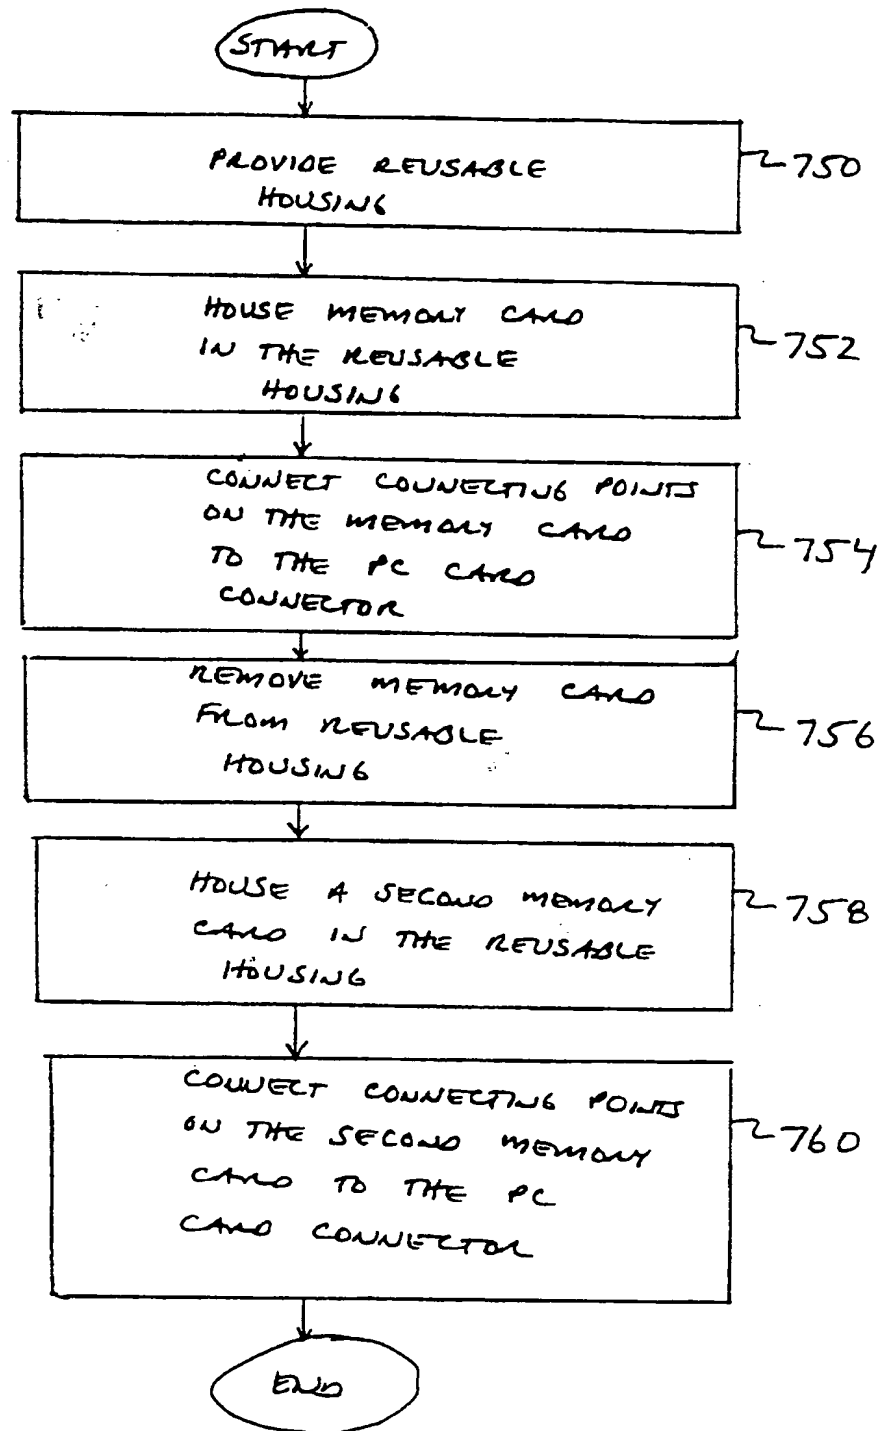 START
PROVIDE REUSABLE
HOUSING
750
HOUSE MEMORY CARD
IN THE REUSABLE
HOUSING
752
CONNECT CONNECTING POINTS
ON THE MEMORY CARD
TO THE PC CARD
CONNECTOR
754
REMOVE MEMORY CARD
FROM REUSABLE
HOUSING
756
HOUSE A SECOND MEMORY
CARD IN THE REUSABLE
HOUSING
758
CONNECT CONNECTING POINTS
ON THE SECOND MEMORY
CARD TO THE PC
CARD CONNECTOR
760
END